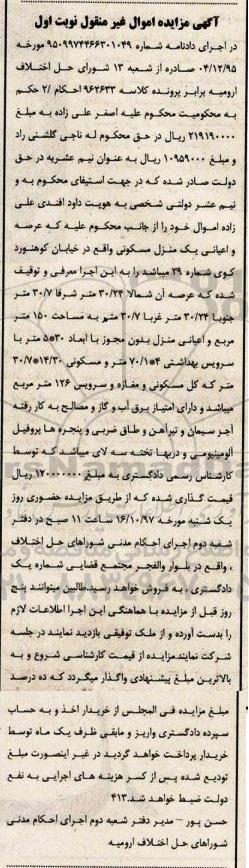 آگهی مزایده اموال غیر منقول نوبت اول
در اجرای دادنامه شماره ۹۵۰۹۹۷۴۴۶۶۳۰۱۰۴۹ مورخه
۰۴/۱۲/۹۵ صادره از شعبه ۱۳ شورای حل اختلاف
ارومیه برابر پرونده کلاسه ۹۶۲۶۳۳ احکام /۲ حکم
به محکومیت محکوم علیه اصغر علی زاده به مبلغ
۲۱۹۱۹۰۰۰۰ ریال در حق محکوم له ناجی گلشنی راد
و مبلغ ۱۰۹۵۹۰۰۰ ریال به عنوان نیم عشریه در حق
دولت صادر شده که در جهت استیفای محکوم به و
نیم عشر دولتی شخصی به هویت داود افندی علی
زاده اموال خود را از جانب محکوم علیه که عرصه
و اعیانی یک منزل مسکونی واقع در خیابان کوهنورد
کوی شماره ۳۹ میباشد را به این اجرا معرفی و توقیف
شده که عرصه آن شمالا ۳۰/۲۴ متر شرقا ۳۰/۷ متر
جنوبا ۳۰/۲۴ متر غربا ۳۰/۷ متر به مساحت ۱۵۰ متر
مربع و اعیانی منزل بدون مجوز با ابعاد ۳۰*۵ متر با
سرویس بهداشتی ۴*۷۰/۱ متر و مسکونی ۱۴/۳۰*۳۰/۷
متر که کل مسکونی و مغازه و سرویس ۱۲۶ متر مربع
میباشد و دارای امتیاز برق آب و گاز و مصالح به کار رفته
آجر سیمان و تیرآهن و طاق ضربی و پنجره ها پروفیل
آلومینیومی و دربها تخته سه لای میباشد که توسط
کارشناس رسمی دادگستری به مبلغ ۱۲۰۰۰۰۰۰۰۰ ریال
قیمت گذاری شده که از طریق مزایده حضوری روز
یک شنبه مورخه ۱۶/۱۰/۹۷ ساعت ۱۱ صبح در دفتر
شعبه دوم اجرای احکام مدنی شوراهای حل اختلاف
، واقع در بلوار والفجر مجتمع قضایی شماره یک
دادگستری ، به فروش خواهد رسید.طالبین میتوانند پنج
روز قبل از مزایده با هماهنگی این اجرا اطلاعات لازم
را بدست آورده و از ملک توقیفی بازدید نمایند در جلسه
شرکت نمایند.مزایده از قیمت کارشناسی شروع و به
بالاترین مبلغ پیشنهادی واگذار میگردد که ده درصد
مبلغ مزایده فی المجلس از خریدار اخذ و به حساب
سپرده دادگستری واریز و مابقی ظرف یک ماه توسط
خریدار پرداخت خواهد گردید در غیر اینصورت مبلغ
تودیع شده پس از کسر هزینه های اجرایی به نفع
دولت ضبط خواهد شد.۴۱۳
حسن پور – مدیر دفتر شعبه دوم اجرای احکام مدنی
شوراهای حل اختلاف ارومیه